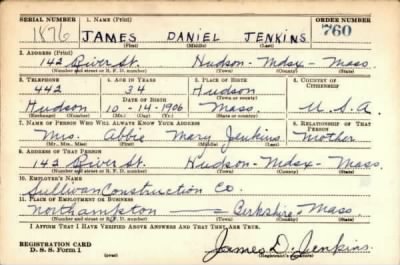 SERIAL NUMBER 1. NAME (Print) ORDER NUMBER
1876 JAMES DANIEL JENKINS 760
(First) (Middle) (Last)
2. ADDRESS (Print)
142 River St. Hudson - Mdsx - Mass.
(Number and street or R. F. D. number) (Town) (County) (State)
3. TELEPHONE 4. AGE IN YEARS 5. PLACE OF BIRTH 6. COUNTRY OF CITIZENSHIP
442 34 Hudson
DATE OF BIRTH (Town or county)
Hudson 10-14-1906 Mass. U.S.A.
(Exchange) (Number) (Mo.) (Day) (Yr.) (State or country)
7. NAME OF PERSON WHO WILL ALWAYS KNOW YOUR ADDRESS 8. RELATIONSHIP OF THAT PERSON
Mrs. Abbie Mary Jenkins Mother
(Mr., Mrs., Miss) (First) (Middle) (Last)
9. ADDRESS OF THAT PERSON
142 River St. Hudson - Mdsx - Mass.
(Number and street or R. F. D. number) (Town) (County) (State)
10. EMPLOYER'S NAME
Sullivan Construction Co.
11. PLACE OF EMPLOYMENT OR BUSINESS
Northampton Berkshire - Mass.
(Number and street or R. F. D. number) (Town) (County) (State)
I AFFIRM THAT I HAVE VERIFIED ABOVE ANSWERS AND THAT THEY ARE TRUE.
REGISTRATION CARD
D. S. S. Form 1 (over) James D. Jenkins
(Registrant's signature)